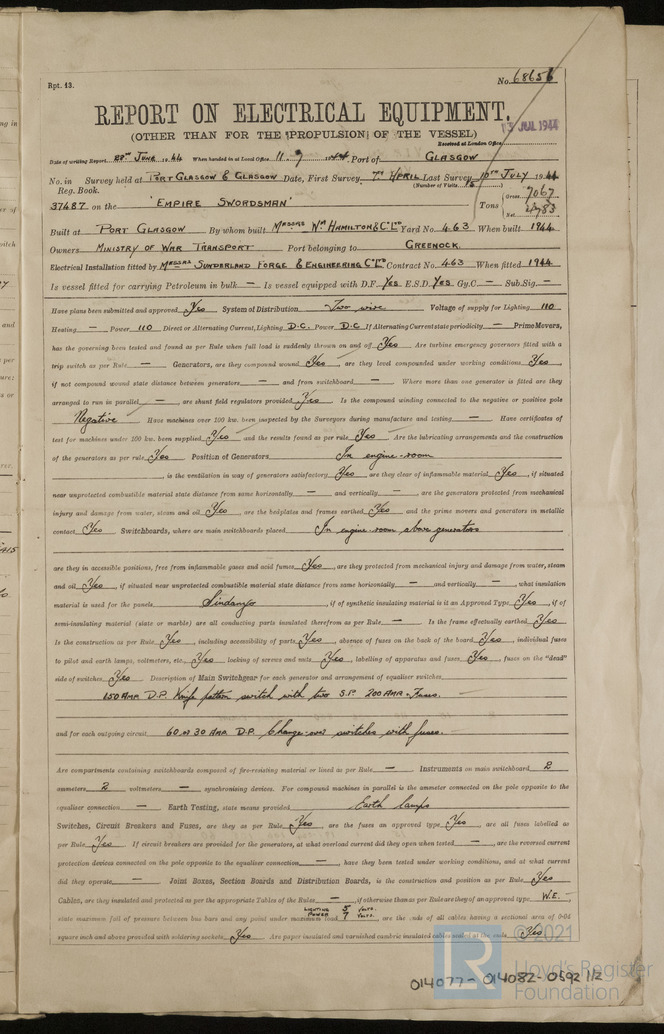 Rpt. 13.
No. 68656
REPORT ON ELECTRICAL EQUIPMENT.
(OTHER THAN FOR THE PROPULSION OF THE VESSEL)
13 JUL 1944
Received at London Office
Date of writing Report 28th June 1944 When handed in at Local Office 11.7.1944 Port of GLASGOW
No. in Survey held at PORT GLASGOW & GLASGOW Date, First Survey 7th APRIL Last Survey 10th JULY 1944
Reg. Book. (Number of Visits 15)
37487 on the 'EMPIRE SWORDSMAN' Tons Gross 7067 Net
Built at PORT GLASGOW By whom built MESSRS WM HAMILTON & Co LTD Yard No. 463 When built 1944
Owners MINISTRY OF WAR TRANSPORT Port belonging to GREENOCK.
Electrical Installation fitted by MESSRS SUNDERLAND FORGE & ENGINEERING Co LD Contract No. 463 When fitted 1944
Is vessel fitted for carrying Petroleum in bulk — Is vessel equipped with D.F. YES E.S.D. YES Gy.C — Sub.Sig. —
Have plans been submitted and approved Yes System of Distribution Two wire Voltage of supply for Lighting 110
Heating — Power 110 Direct or Alternating Current, Lighting D.C. Power D.C. If Alternating Current state periodicity — Prime Movers,
has the governing been tested and found as per Rule when full load is suddenly thrown on and off Yes Are turbine emergency governors fitted with a
trip switch as per Rule — Generators, are they compound wound Yes, are they level compounded under working conditions Yes,
if not compound wound state distance between generators — and from switchboard — Where more than one generator is fitted are they
arranged to run in parallel —, are shunt field regulators provided Yes Is the compound winding connected to the negative or positive pole
Negative Have machines over 100 kw. been inspected by the Surveyors during manufacture and testing — Have certificates of
test for machines under 100 kw. been supplied Yes and the results found as per rule Yes Are the lubricating arrangements and the construction
of the generators as per rule Yes Position of Generators In engine-room
, is the ventilation in way of generators satisfactory Yes are they clear of inflammable material Yes, if situated
near unprotected combustible material state distance from same horizontally — and vertically —, are the generators protected from mechanical
injury and damage from water, steam and oil Yes, are the bedplates and frames earthed Yes and the prime movers and generators in metallic
contact Yes Switchboards, where are main switchboards placed In engine room above generators
are they in accessible positions, free from inflammable gases and acid fumes Yes, are they protected from mechanical injury and damage from water, steam
and oil Yes, if situated near unprotected combustible material state distance from same horizontally — and vertically —, what insulation
material is used for the panels Sindanyo, if of synthetic insulating material is it an Approved Type Yes, if of
semi-insulating material (slate or marble) are all conducting parts insulated therefrom as per Rule — Is the frame effectually earthed Yes
Is the construction as per Rule Yes, including accessibility of parts Yes, absence of fuses on the back of the board Yes, individual fuses
to pilot and earth lamps, voltmeters, etc., Yes locking of screws and nuts Yes, labelling of apparatus and fuses Yes, fuses on the "dead"
side of switches Yes Description of Main Switchgear for each generator and arrangement of equaliser switches
150 AMP. D.P. Knife pattern switch with two S.P. 200 AMP. Fuses.
and for each outgoing circuit 60 or 30 AMP. D.P. Change-over switches with fuses.
Are compartments containing switchboards composed of fire-resisting material or lined as per Rule — Instruments on main switchboard 2
ammeters 2 voltmeters — synchronising devices. For compound machines in parallel is the ammeter connected on the pole opposite to the
equaliser connection — Earth Testing, state means provided Earth lamps
Switches, Circuit Breakers and Fuses, are they as per Rule Yes, are the fuses an approved type Yes, are all fuses labelled as
per Rule Yes If circuit breakers are provided for the generators, at what overload current did they open when tested —, are the reversed current
protection devices connected on the pole opposite to the equaliser connection —, have they been tested under working conditions, and at what current
did they operate — Joint Boxes, Section Boards and Distribution Boards, is the construction and position as per Rule Yes
Cables, are they insulated and protected as per the appropriate Tables of the Rules —, if otherwise than as per Rule are they of an approved type W.E.
state maximum fall of pressure between bus bars and any point under maximum load LIGHTING 5 VOLTS. POWER 7 VOLTS., are the ends of all cables having a sectional area of 0·04
square inch and above provided with soldering sockets Yes Are paper insulated and varnished cambric insulated cables sealed at the ends Yes
© 2021
LR
Lloyd's Register
Foundation
014077-014082-0592 1/2